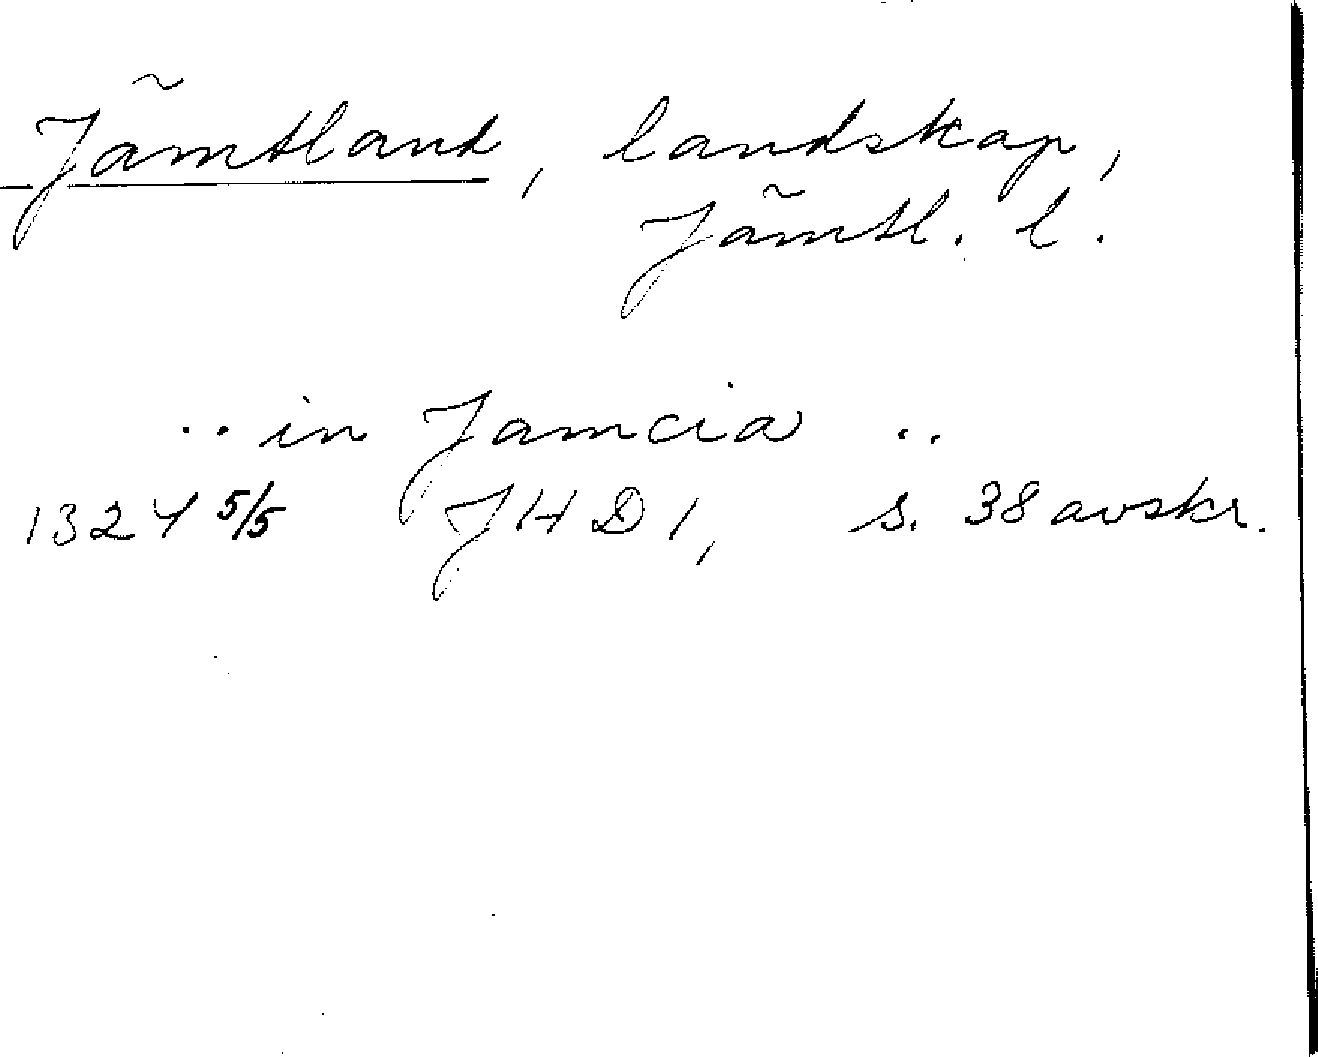 Jämtland, landskap,
Jämtl. l.
.. in Jamcia ..
1324 5/5 JHD 1, s. 38 avskr.